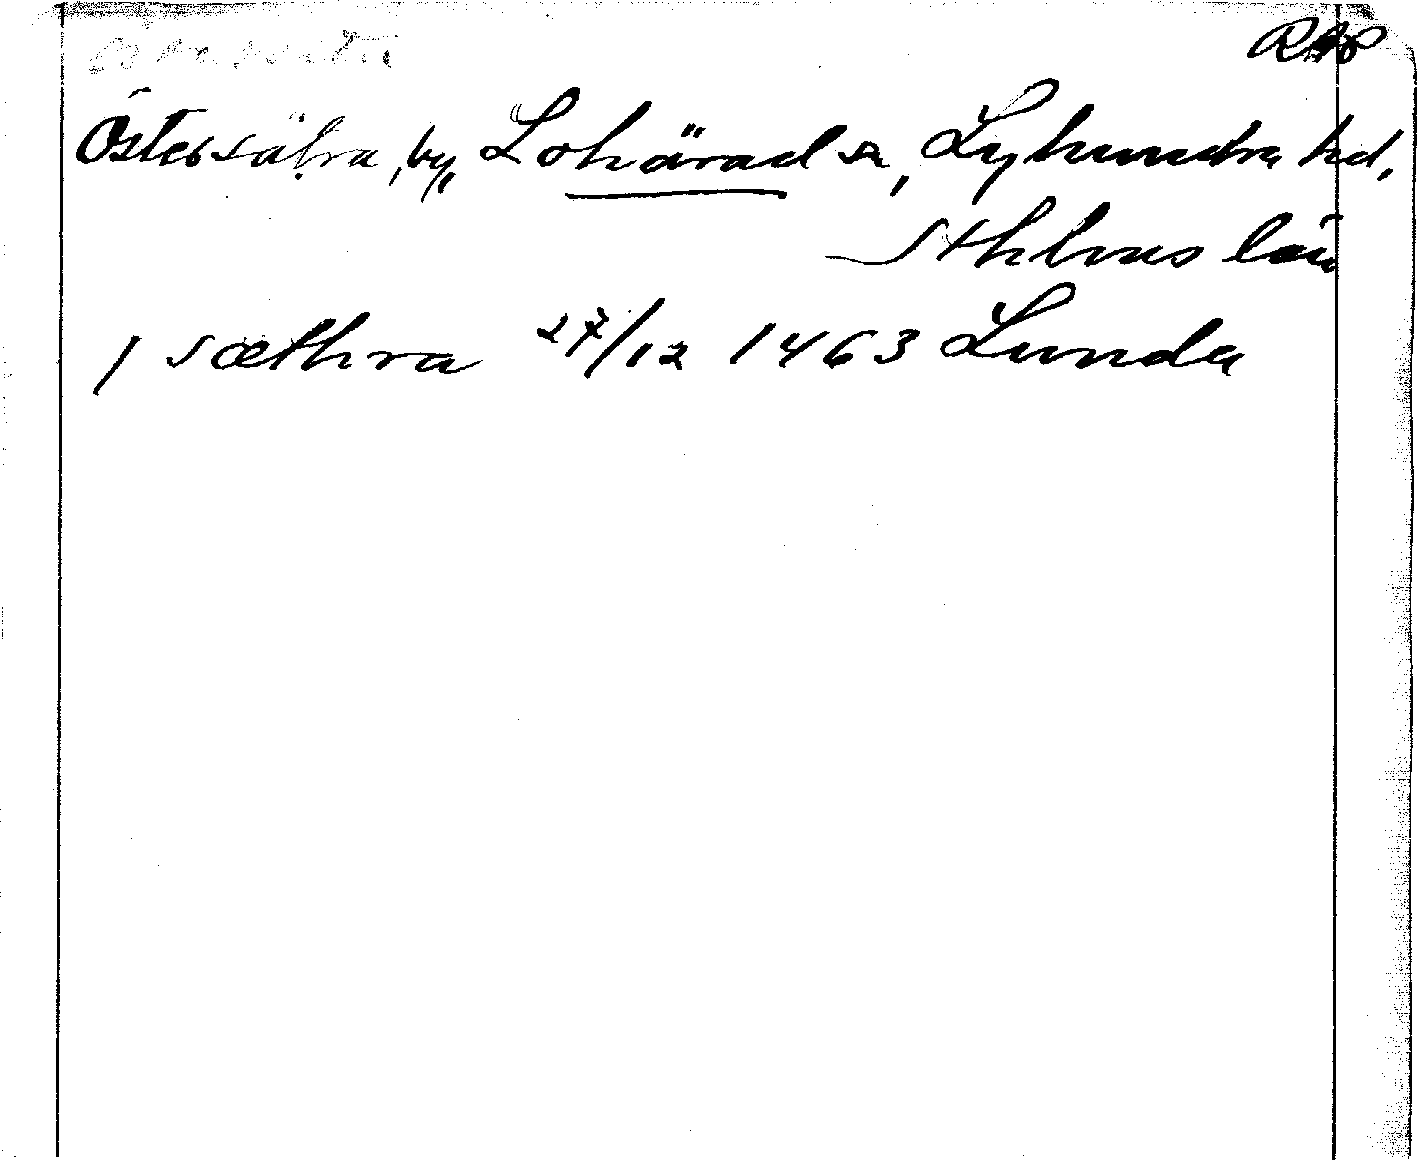 RAP
Östersätra, by, Lohärad sn, Lyhundra hd,
Sthlms län
/ sæthra 27/12 1463 Lunda